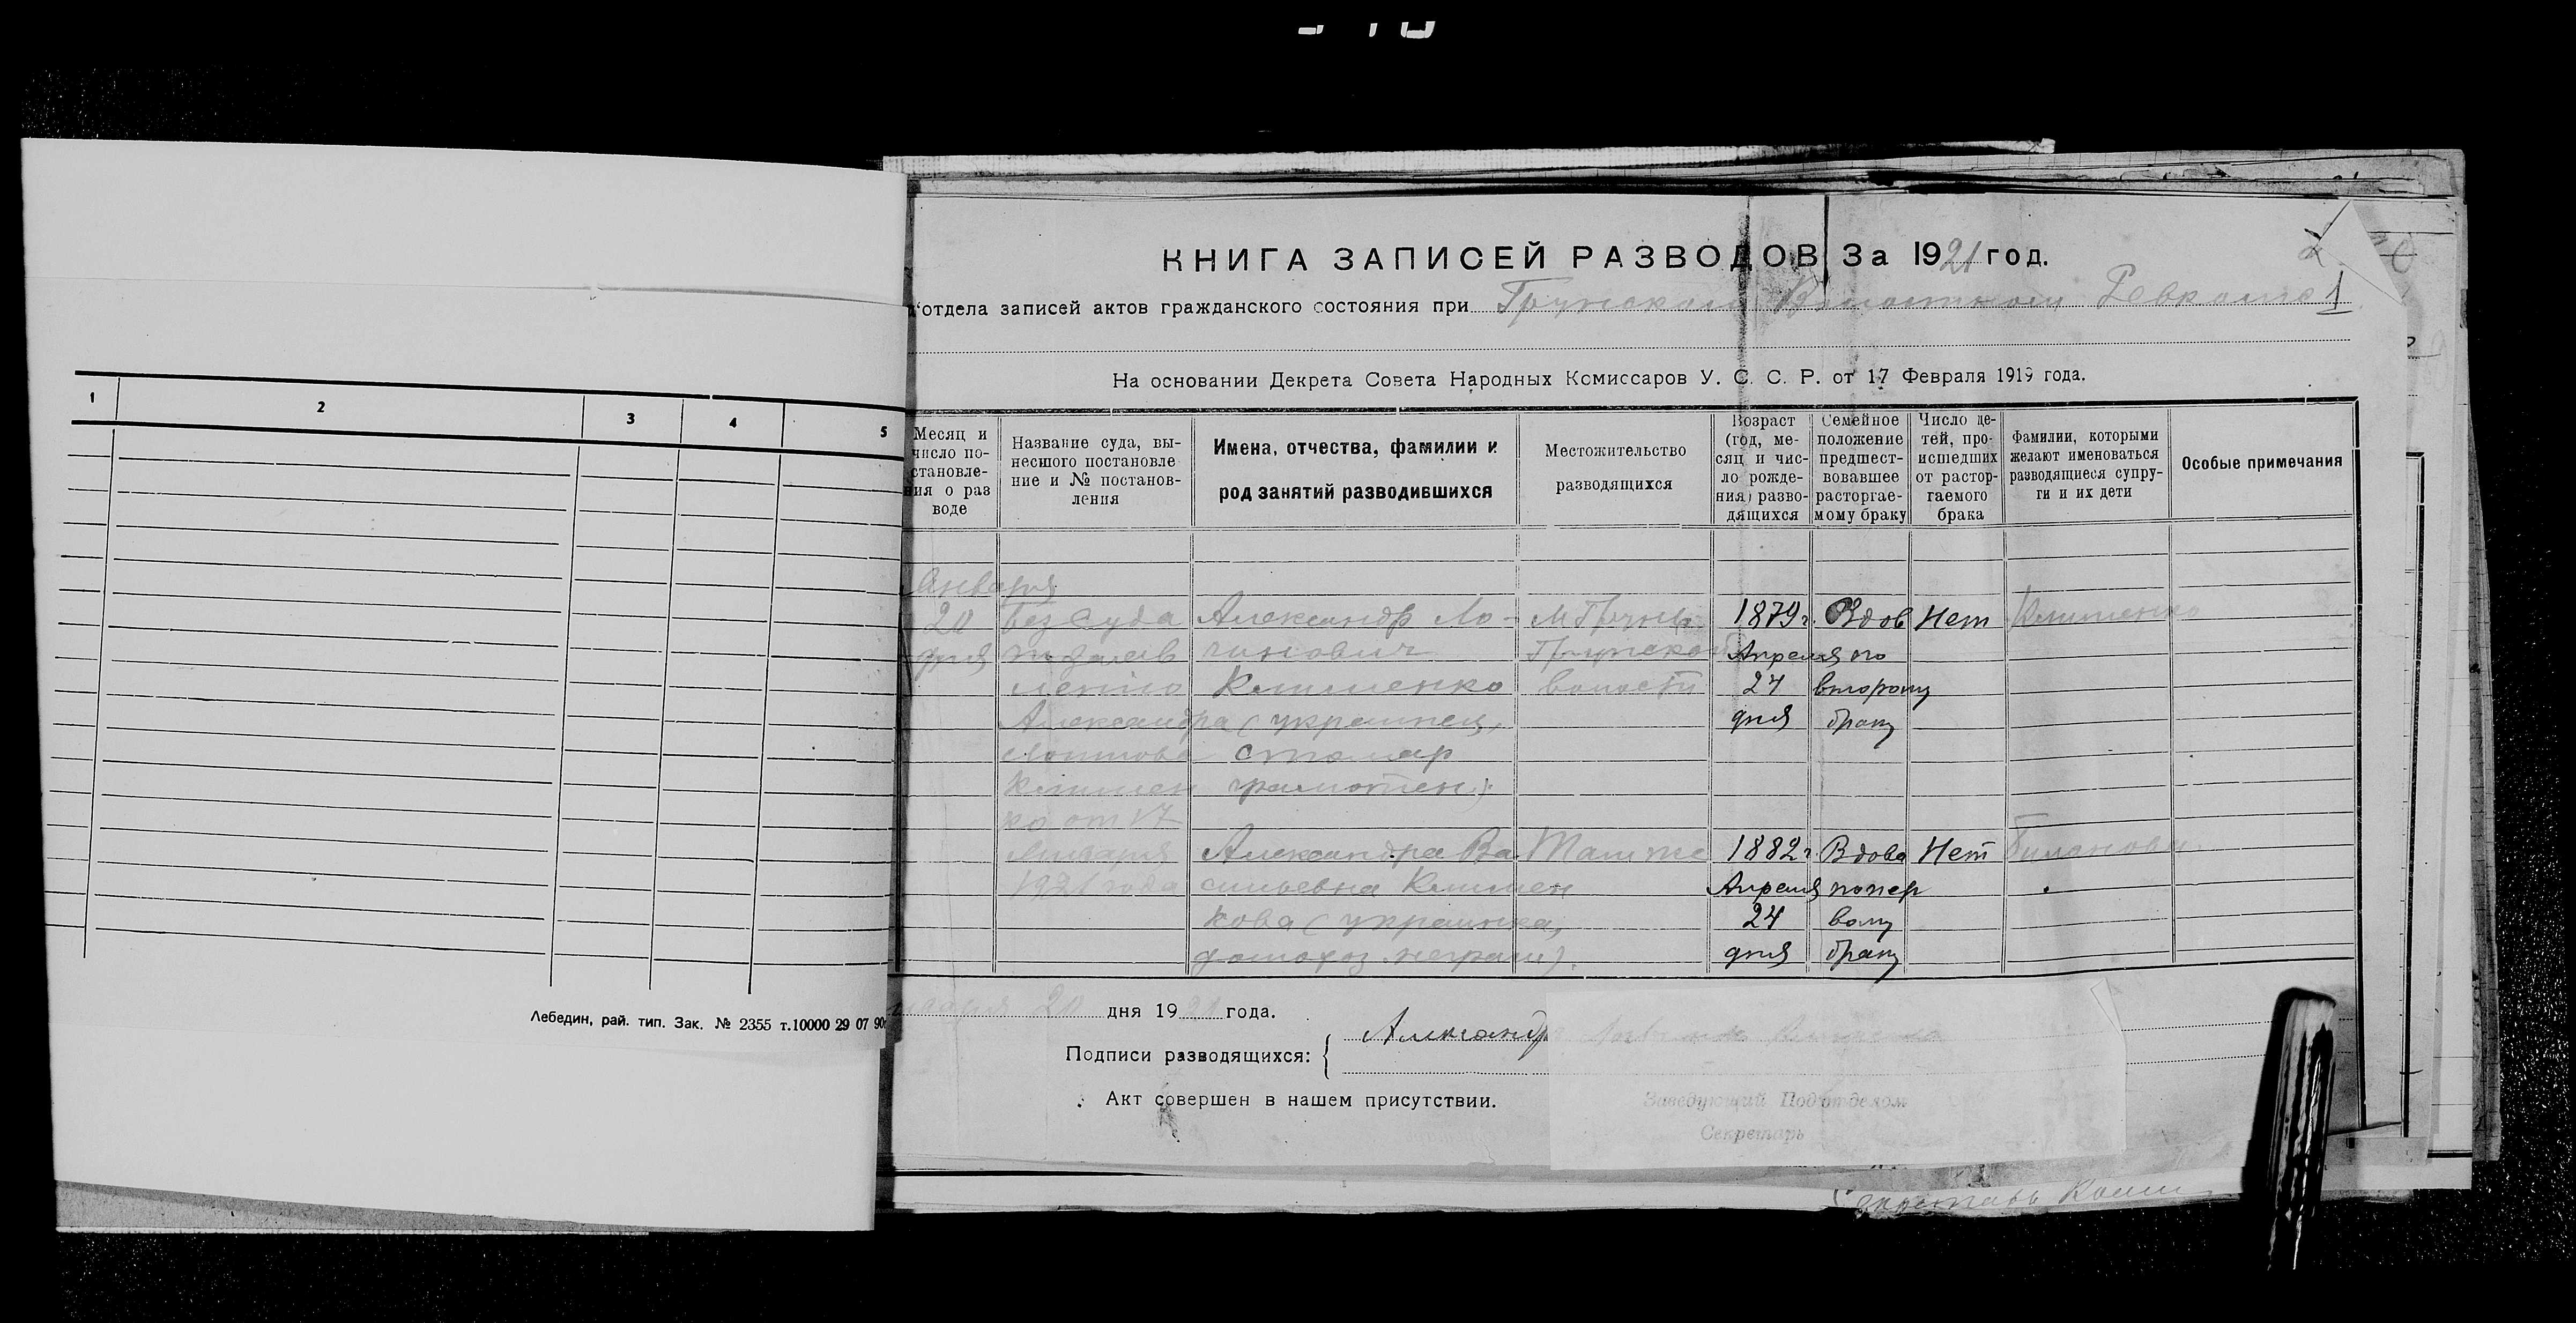 1 2 3 4 5
Лебедин, рай. тип. Зак. № 2355 т.10000 29 07 90
КНИГА ЗАПИСЕЙ РАЗВОДОВ За 1921 год.
отдела записей актов гражданского состояния при Грунском Волостном Ревкоме 1
На основании Декрета Совета Народных Комиссаров У. С. С. Р. от 17 Февраля 1919 года.
Месяц и число постановления о разводе
Название суда, вынесшого постановление и № постановления
Имена, отчества, фамилии и род занятий разводившихся
Местожительство разводящихся
Возраст (год, месяц и число рождения) разводящихся
Семейное положение предшествовавшее расторгаемому браку
Число детей, происшедших от расторгаемого брака
Фамилии, которыми желают именоваться разводящиеся супруги и их дети
Особые примечания
Января
20 без суда Александр Ло- М Груни 1879 г. Вдов Нет Клименко
дня чинович Грунской Апреля по
Клименко волости 24 второму
Александра (украинец, дня браку
столяр
Климен грамотен)
ко от 17
Января Александра Ва Там же 1882 г. Вдова Нет
1921 года сильевна Климен Апреля по пер
кова (украинка, 24 вому
домохоз. неграм). дня браку
20 дня 1921 года.
Подписи разводящихся: Александр
Акт совершен в нашем присутствии.
Заведующий Подотделом
Секретарь
Секретарь